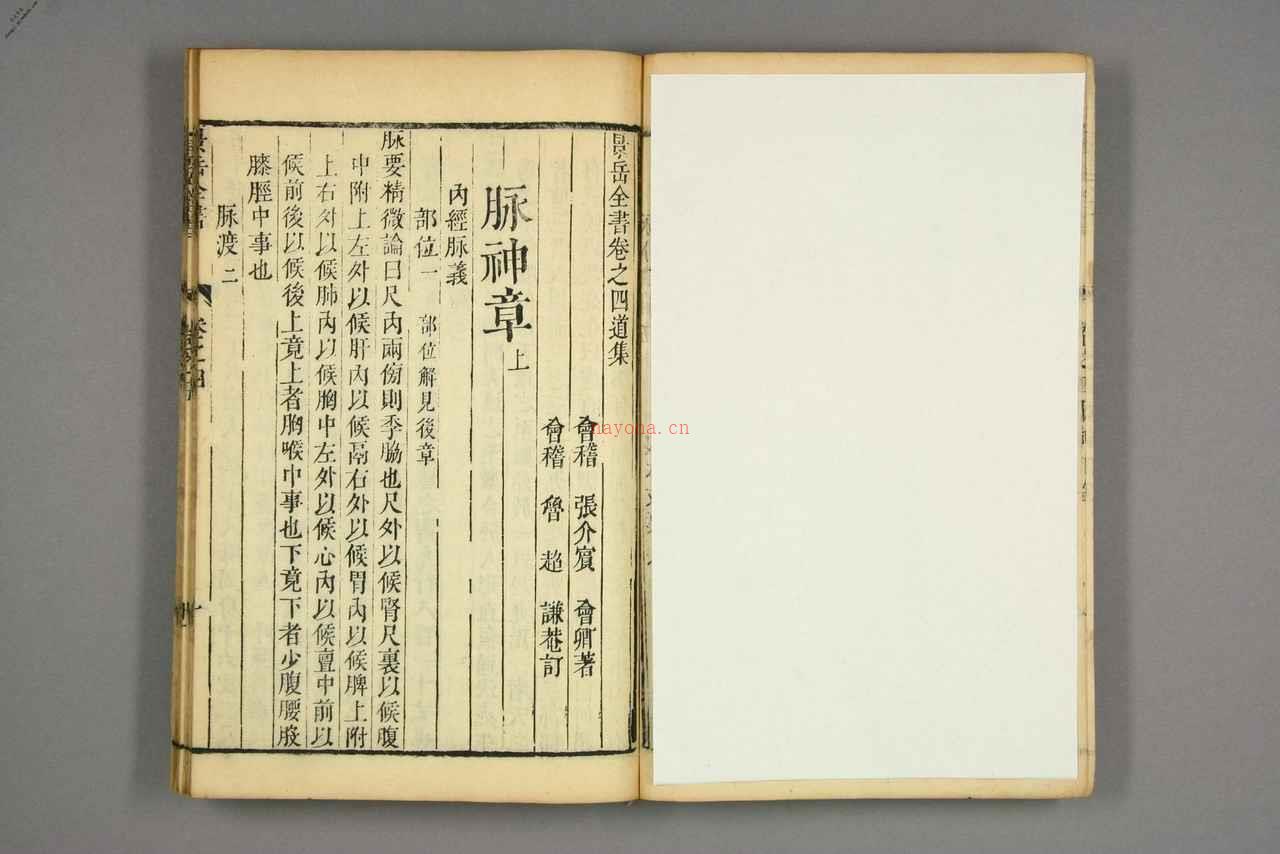 景岳全書卷之四道集
會稽 張介賓 會卿著
會稽 魯 超 謙菴訂
脉神章上
內經脉義
部位一 部位解見後章
脉要精微論曰尺內兩傍則季脇也尺外以候腎尺裏以候腹
中附上左外以候肝內以候鬲右外以候胃內以候脾上附
上右外以候肺內以候胸中左外以候心內以候亶中前以
候前後以候後上竟上者胸喉中事也下竟下者少腹腰股
膝脛中事也
脉渡二
景岳全書
卷之四
nayona.cn